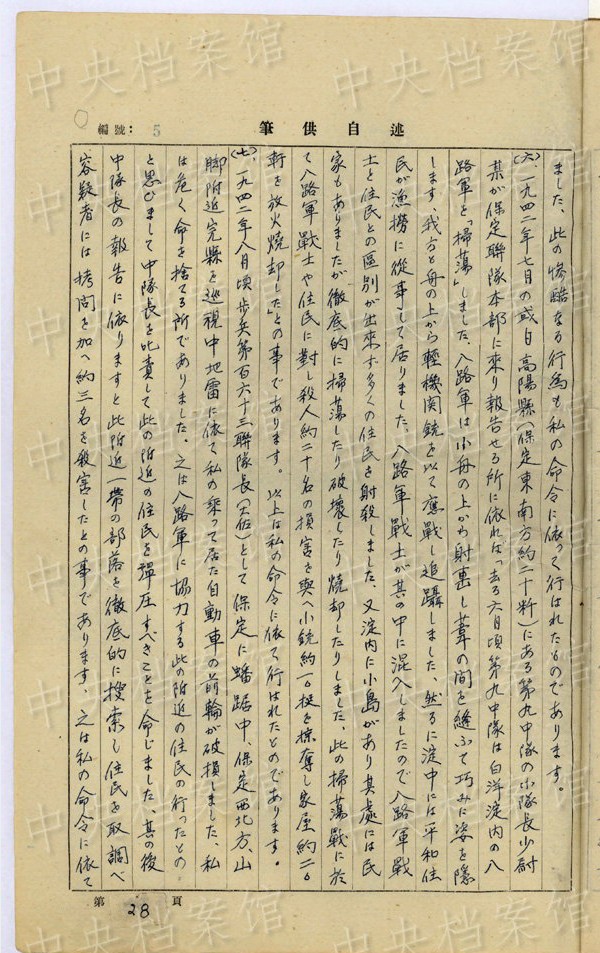 編號: 5
述自供筆
ました、此の惨酷なる行為も私の命令に依って行はれたものであります。
(六)、一九四二年七月の或日高陽縣(保定東南方約二十粁)にある第九中隊の小隊長少尉
某が保定聯隊本部に來り報告せる所に依れば「去る六月頃第九中隊は白洋淀内の八
路軍を「掃蕩」しました、八路軍は小舟の上から射撃し葦の間を縫ふて巧みに姿を隠
します、我方も舟の上から輕機関銃を以て應戰し追躡しました、然るに淀中には平和住
民が漁撈に從事して居りました、八路軍戰士が其の中に混入しましたので八路軍戰
士と住民との區別が出来ず多くの住民を射殺しました、又淀内に小島があり其處には民
家もありましたが徹底的に掃蕩したり破壊したり焼却したりしました、此の掃蕩戰に於
て八路軍戰士や住民に對し殺人約二十名の損害を與へ小銃約一〇挺を掠奪し家屋約二〇
軒を放火焼却した」との事であります。以上は私の命令に依て行はれたものであります。
(七)、一九四二年八月頃歩兵第百六十三聯隊長(大佐)として保定に蟠踞中、保定西北方、山
脚附近完縣を巡視中地雷に依て私の乘って居た自動車の前輪が破損しました、私
は危く命を捨てる所でありました、之は八路軍に協力する此の附近の住民の行ったもの
と思ひまして中隊長を叱責して此の附近の住民を彈圧すべきことを命じました、其の後
中隊長の報告に依りますと此附近一帯の部落を徹底的に捜索し住民を取調べ
容疑者には拷問を加へ約三名を殺害したとの事であります、之は私の命令に依て
第 28 頁
中央档案馆